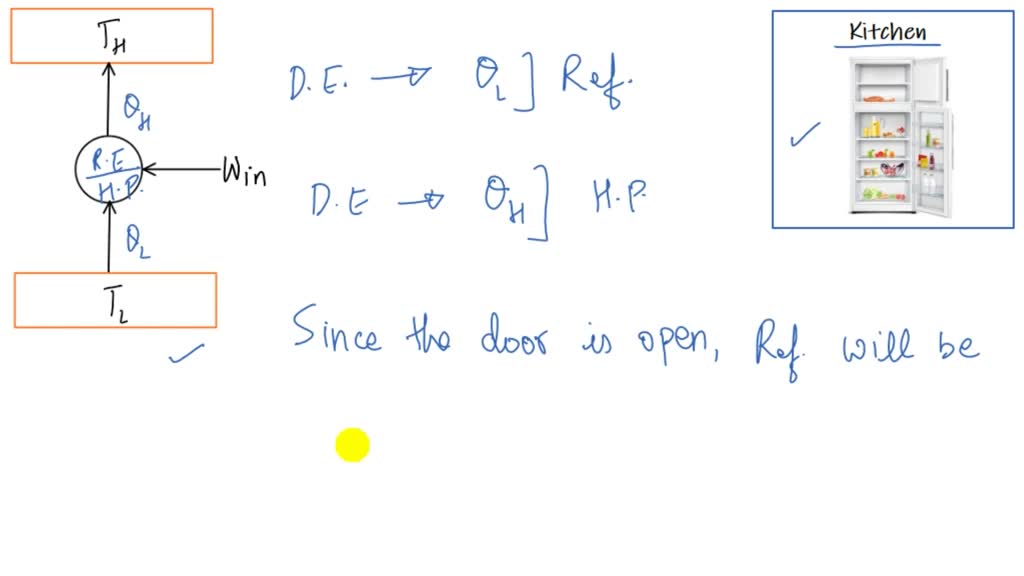 T_H
Q_H
R.E
H.P.
W_in
Q_L
T_L
D.E. → Q_L] Ref.
D.E → Q_H] H.P.
Since the door is open, Ref. will be
Kitchen